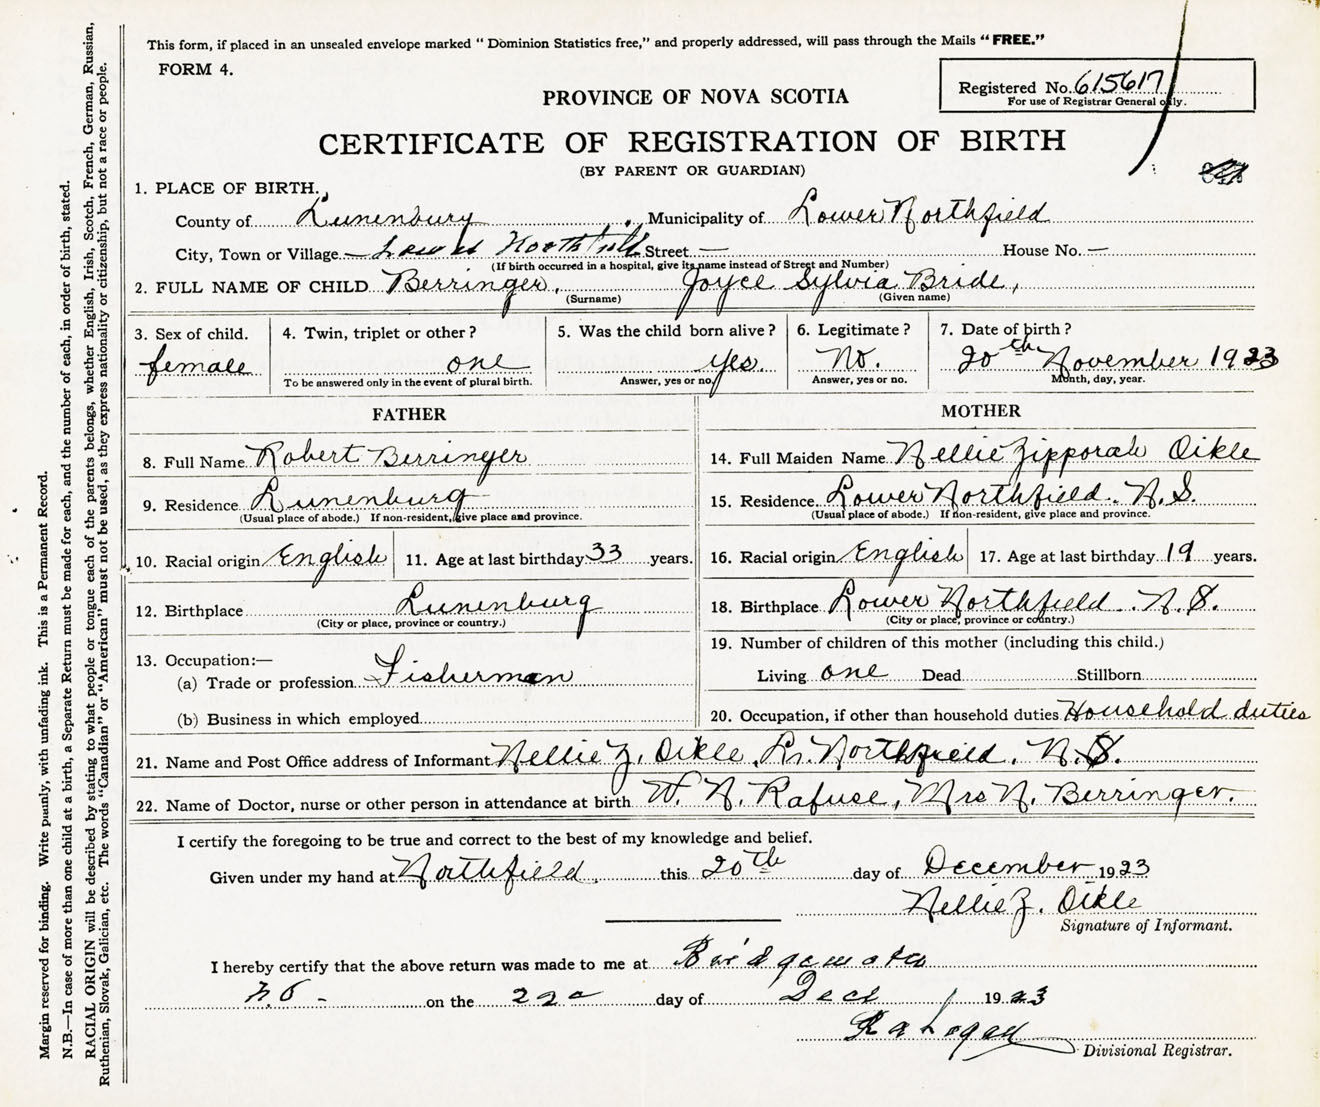 This form, if placed in an unsealed envelope marked "Dominion Statistics free," and properly addressed, will pass through the Mails "FREE."
FORM 4.
Registered No. 615617
For use of Registrar General only.
PROVINCE OF NOVA SCOTIA
CERTIFICATE OF REGISTRATION OF BIRTH
(BY PARENT OR GUARDIAN)
1. PLACE OF BIRTH.
County of Lunenburg Municipality of Lower Northfield
City, Town or Village Lower Northfield Street — House No. —
(If birth occurred in a hospital, give its name instead of Street and Number)
2. FULL NAME OF CHILD Berringer, Joyce Sylvia Bride,
(Surname) (Given name)
3. Sex of child. 4. Twin, triplet or other? 5. Was the child born alive? 6. Legitimate? 7. Date of birth?
female one yes. No. 20th November 1923
To be answered only in the event of plural birth. Answer, yes or no. Answer, yes or no. Month, day, year.
FATHER
8. Full Name Robert Berringer
9. Residence Lunenburg
(Usual place of abode.) If non-resident, give place and province.
10. Racial origin English 11. Age at last birthday 33 years.
12. Birthplace Lunenburg
(City or place, province or country.)
13. Occupation:—
(a) Trade or profession Fisherman
(b) Business in which employed
MOTHER
14. Full Maiden Name Nellie Zipporah Oikle
15. Residence Lower Northfield. N.S.
(Usual place of abode.) If non-resident, give place and province.
16. Racial origin English 17. Age at last birthday 19 years.
18. Birthplace Lower Northfield. N.S.
(City or place, province or country.)
19. Number of children of this mother (including this child.)
Living one Dead Stillborn
20. Occupation, if other than household duties Household duties
21. Name and Post Office address of Informant Nellie Z. Oikle, Lr. Northfield. N.S.
22. Name of Doctor, nurse or other person in attendance at birth W. N. Rafuse, Mrs N. Berringer.
I certify the foregoing to be true and correct to the best of my knowledge and belief.
Given under my hand at Northfield. this 20th day of December 1923
Nellie Z. Oikle
Signature of Informant.
I hereby certify that the above return was made to me at Bridgewater
N S - on the 22d day of Dec 1923
Divisional Registrar.
Margin reserved for binding. Write plainly, with unfading ink. This is a Permanent Record.
N.B.—In case of more than one child at a birth, a Separate Return must be made for each, and the number of each, in order of birth, stated.
RACIAL ORIGIN will be described by stating to what people or tongue each of the parents belongs, whether English, Irish, Scotch, French, German, Russian,
Ruthenian, Slovak, Galician, etc. The words "Canadian" or "American" must not be used, as they express nationality or citizenship, but not a race or people.